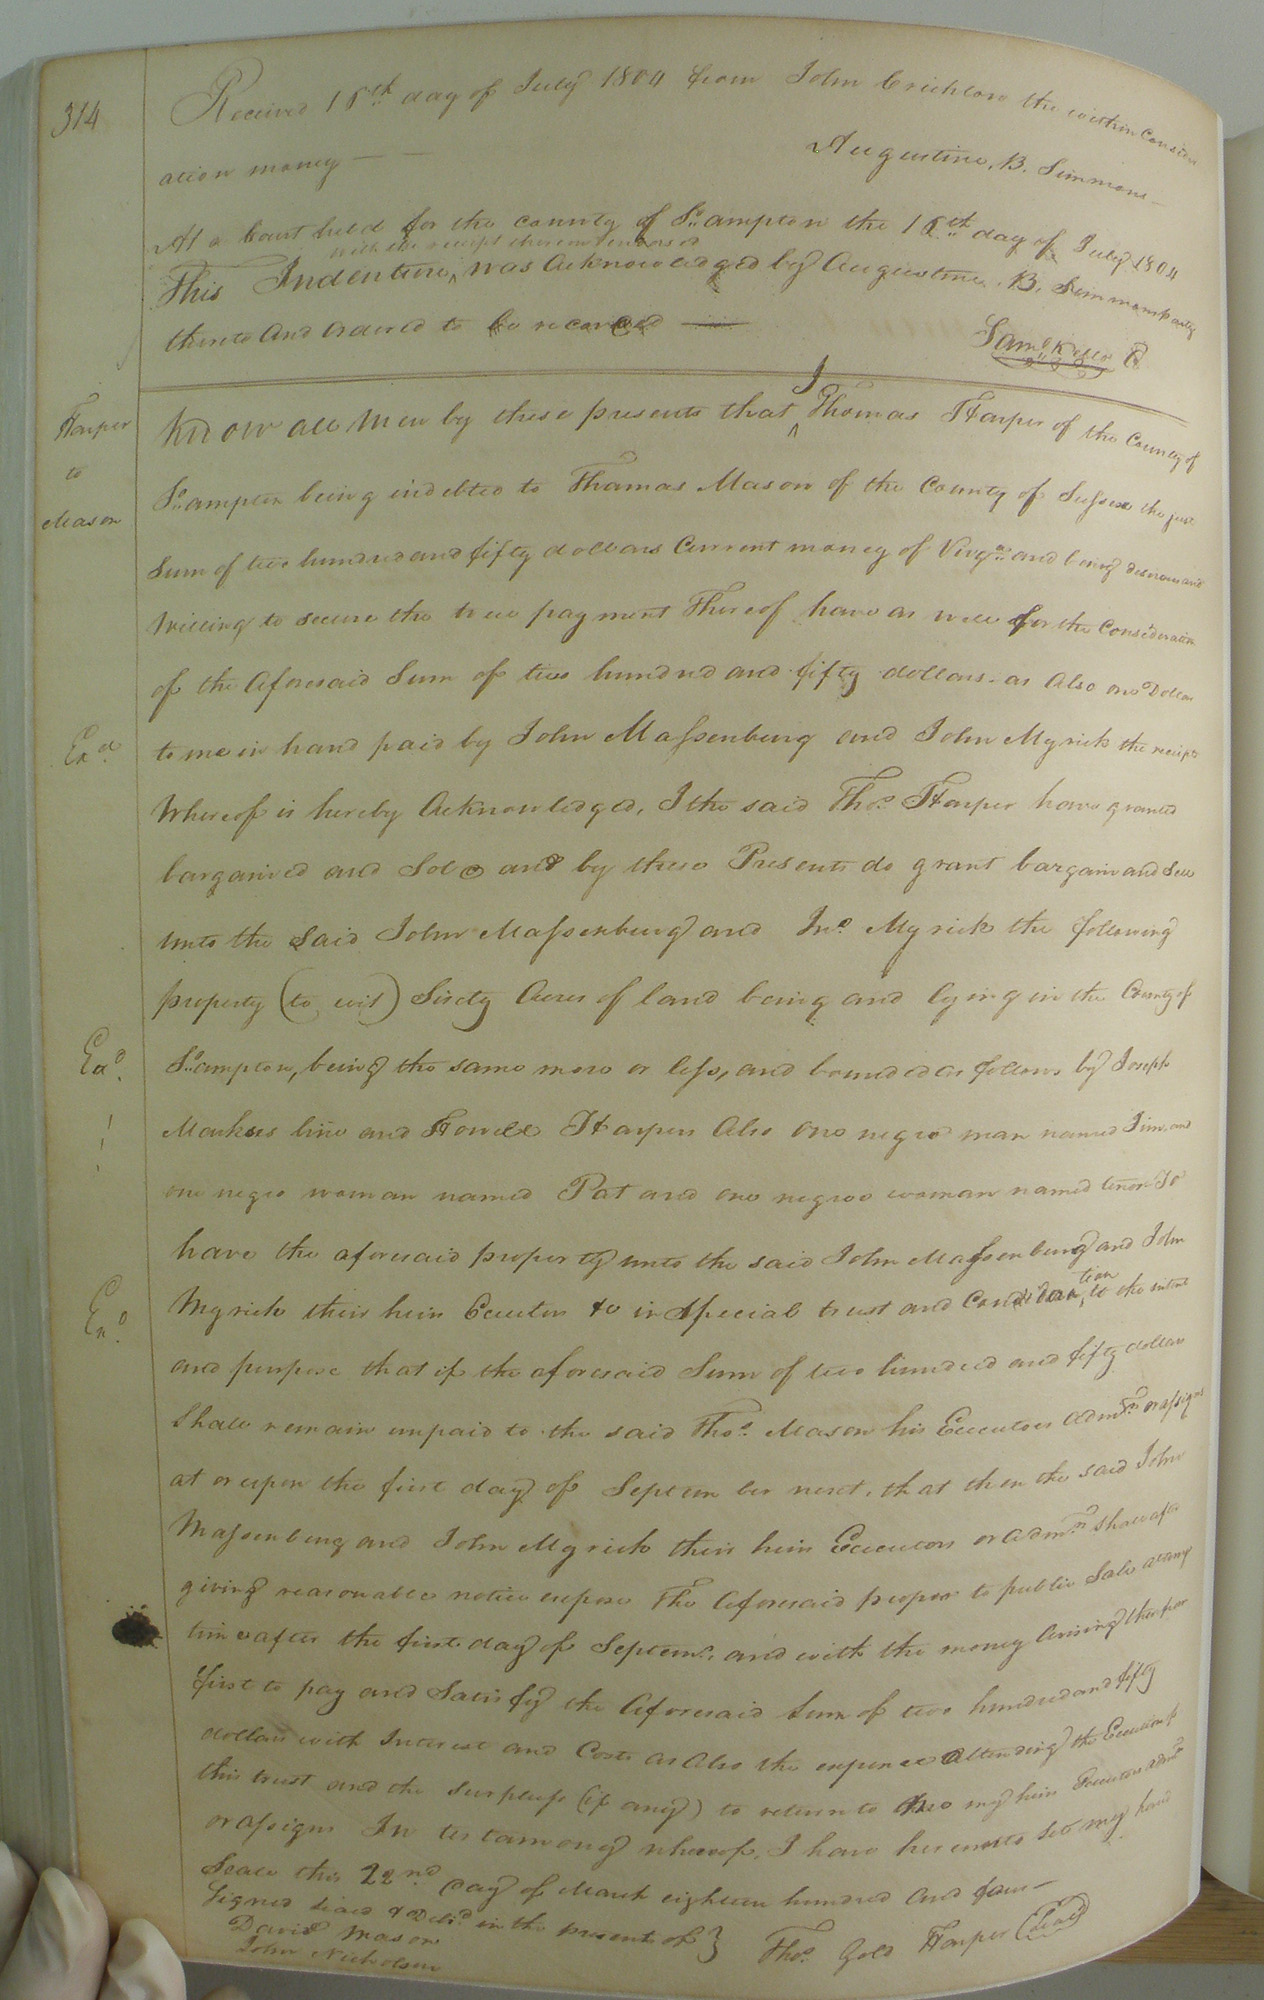 314
Received 16th day of July 1804 from John Crichlow the within Consider
ation money — —
Augustine. B. Simmons —
At a Court held for the county of So.ampton the 16th day of July 1804
with the receipt thereon endorsed
This Indenture ^ was Acknowledged by Augustine. B. Simmons party
thereto and Ordered to be recorded —
Saml Kello C
Harper
to
Mason
Know all Men by these presents that ^ I Thomas Harper of the County of
So.ampton being indebted to Thomas Mason of the County of Sussex the just
Sum of two hundred and fifty dollars Current money of Virga. and being desirous and
Willing to secure the true payment Thereof have as well for the Consideration
of the Aforesaid Sum of two hundred and fifty dollars. as Also one Dollar
Exd.
to me in hand paid by John Massenburg and John Myrick the receipt
Whereof is hereby Acknowledged, I the said Thos. Harper have granted
bargained and Sold and by these Presents do grant bargain and Sell
unto the Said John Massenburg and Jno. Myrick the following
property (to wit) Sixty Acres of land being and lying in the County of
Exd.
So.ampton, being the same more or less, and bounded as follows by Joseph
line and Howell Harpers Also one negro man named Jim, and
one negro woman named Pat and one negroe woman named To
have the aforesaid property unto the said John Massenburg and John
Exd.
Myrick their heirs Executors &c in Special trust and to the intent
and purpose that if the aforesaid Sum of two hundred and fifty dollars
Shall remain unpaid to the said Thos. Mason his Executors Admrs. or assigns
at or upon the first day of September next, that then the said John
Massenburg and John Myrick their heirs Executors or Admrs shall after
giving reasonable notice expose The Aforesaid to public Sale at any
time after the first day of Septemr. and with the money Arising
first to pay and Satisfy the Aforesaid Sum of two hundred and fifty
dollars with Interest and Costs as Also the expence Attending the Execution of
this trust and the Surpluss (if any) to return to my heirs Executors Admrs
or assigns In testamony whereof, I have hereunto Set my hand
Seale this 22nd Day of March eighteen hundred and four —
Signed Seaed & Delid. in the presents of }
Thos. Gold Harper (Seal)
David Mason
John Nicholson